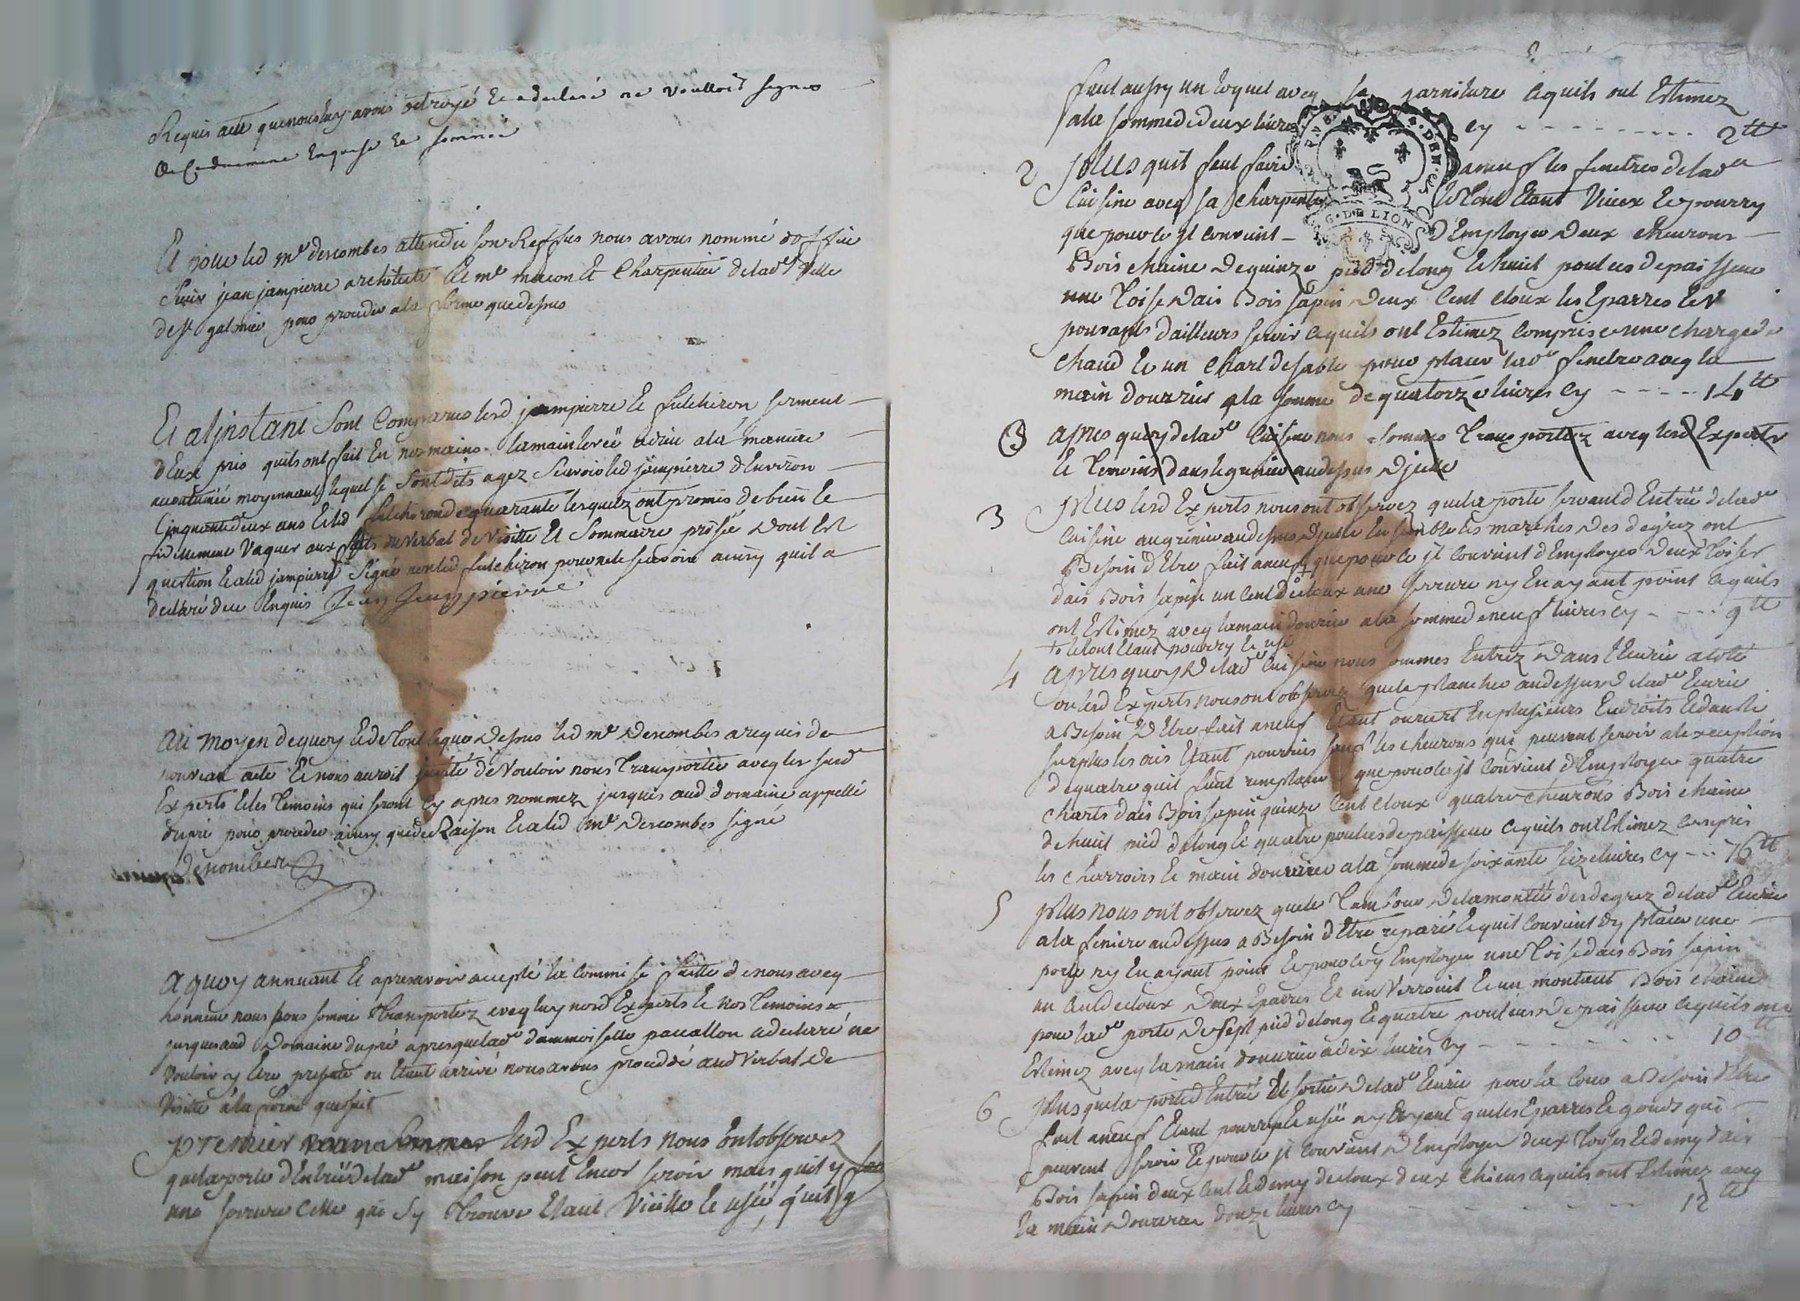 Requis acte que nous luy avons octroyé et a declaré ne voulloir signer
de ce duement enquise et sommée
Et pour led mr descombes attendu son Reffus nous avons nommé d'office
Sieur jean jampierre architecte et me macon et Charpentier de lad ville
de st galmier pour proceder a la forme que dessus
Et a l'jnstant sont Comparus lesd jampierre et fulchiron serment
d'Eux pris quils ont fait En nos mains la main levéé a dieu a la maniere
accoutumée moyennant lequel se sont dits agez Scavoir led jampierre d'Environ
Cinquante deux ans Et led fulchiron de quarante lesquelz ont promis de bien et
fidellement vaquer aux faits du verbal de visitte Et Sommaire prisée dont Est
question Et a led jampierre Signé non led fulchiron pour ne le scavoir ainsy quil a
declaré de ce Enquis Jean Jampierre
Au moyen de quoy Et de tout ce que dessus led mr descombes a requis de
nouveau acte Et nous auroit jnvité de vouloir nous transporter avec les susd
Experts Et les temoins qui seront cy apres nommez jusques aud domaine appellé
dupré pour proceder ainsy que de Raison Et a led mr descombes signé
A quoy annuant Et apres avoir accepté la commise faitte de nous avec
honneur nous nous sommes transportez avec luy nosd Experts Et nos temoins
jusques aud Domaine dupré apres que lad dammoiselle pacallon a declarré ne
vouloir y etre presente ou Etant arrivé nous avons procedé aud verbal de
visitte a la forme que suit
Premier lesd Experts nous ont observez
que la porte d'Entréé de lad maison peut Encor servir mais quil y faut
une serrure celle qui s'y trouve Etant vieille et uséé, quil y
faut aussy un loquet avec sa garniture ce quils ont Estimez
a la somme de deux livres cy - - - - - - - - - 2tt
2 Plus quil faut faire a neuf les fenetres de lad
Cuisine avec sa Charpente le tout Etant vieux et pourry
G·DE LION
que pour ce jl convient D'Employer deux chevrons
Bois chaine de quinze pied de long et huit pouces depaisseur
une toise dais Bois sapin deux Cent cloux les Eparres
pouvants d'ailleurs servir ce quils ont Estimez compris une charge de
chaud et un chart de sable pour placer lad fenetre avec la
main douvrier a la somme de quatorze livres cy - - - - 14tt
3 Apres quoy de lad Cuisine nous sommes transportez avec lesd Experts
et temoins dans le grenier au dessus d'jcelle
3 Plus lesd Experts nous ont observez que la porte servant d'Entréé de lad
Cuisine au grenier au dessus d'jcelle Ensemble les marches des degrez ont
Besoin d'Etre fait a neuf que pour ce jl convient d'Employer deux toises
dais Bois sapin un cent de cloux une serrure n'y En ayant point ce quils
ont Estimez avec la main douvrier a la somme de neuf livres cy - - - - 9tt
le tout Etant pourry et usé
4 Apres quoy de lad Cuisine nous sommes Entrez dans l'Ecurie a coté
ou lesd Experts nous ont observez que le plancher au dessus de lad Ecurie
a Besoin d'Etre fait a neuf Etant ouvert En plusieurs Endroits Et dans le
surplus les ais Etant pourries sauf les chevrons qui peuvent servir a lexception
de quatre quil faut remplacer que pour ce jl convient d'Employer quatre
charts dais Bois sapin quinze Cent cloux quatre chevrons Bois chaine
de huit pied de long Et quatre pouces depaisseur ce quils ont Estimez compris
les charrois Et main douvrier a la somme de soixante seize livres cy - - 76tt
5 Plus nous ont observez que le tambour de la montéé des degrez de lad Ecurie
a la feniere au dessus a Besoin d'Etre reparé Et quil convient d'y placer une
porte n'y En ayant point Et pour ce y Employer une toise dais Bois sapin
un Cent de cloux deux Eparres Et un verrouil Et un montant Bois chaine
pour lad porte de sept pied de long Et quatre pouces depaisseur ce quils ont
Estimez avec la main douvrier a dix livres cy - - - - - - - - 10tt
6 Plus que la porte d'Entréé Et sortie de lad Ecurie pour la Cour a Besoin d'Etre
fait a neuf Etant pourrie Et uséé n'y Ayant que les Eparres Et gonds qui
peuvent servir Et que pour ce jl convient d'Employer deux toises Et demy dais
Bois sapin deux Cent Et demy de cloux deux chiens ce quils ont Estimez avec
la main douvrier douze livres cy - - - - - - - 12tt